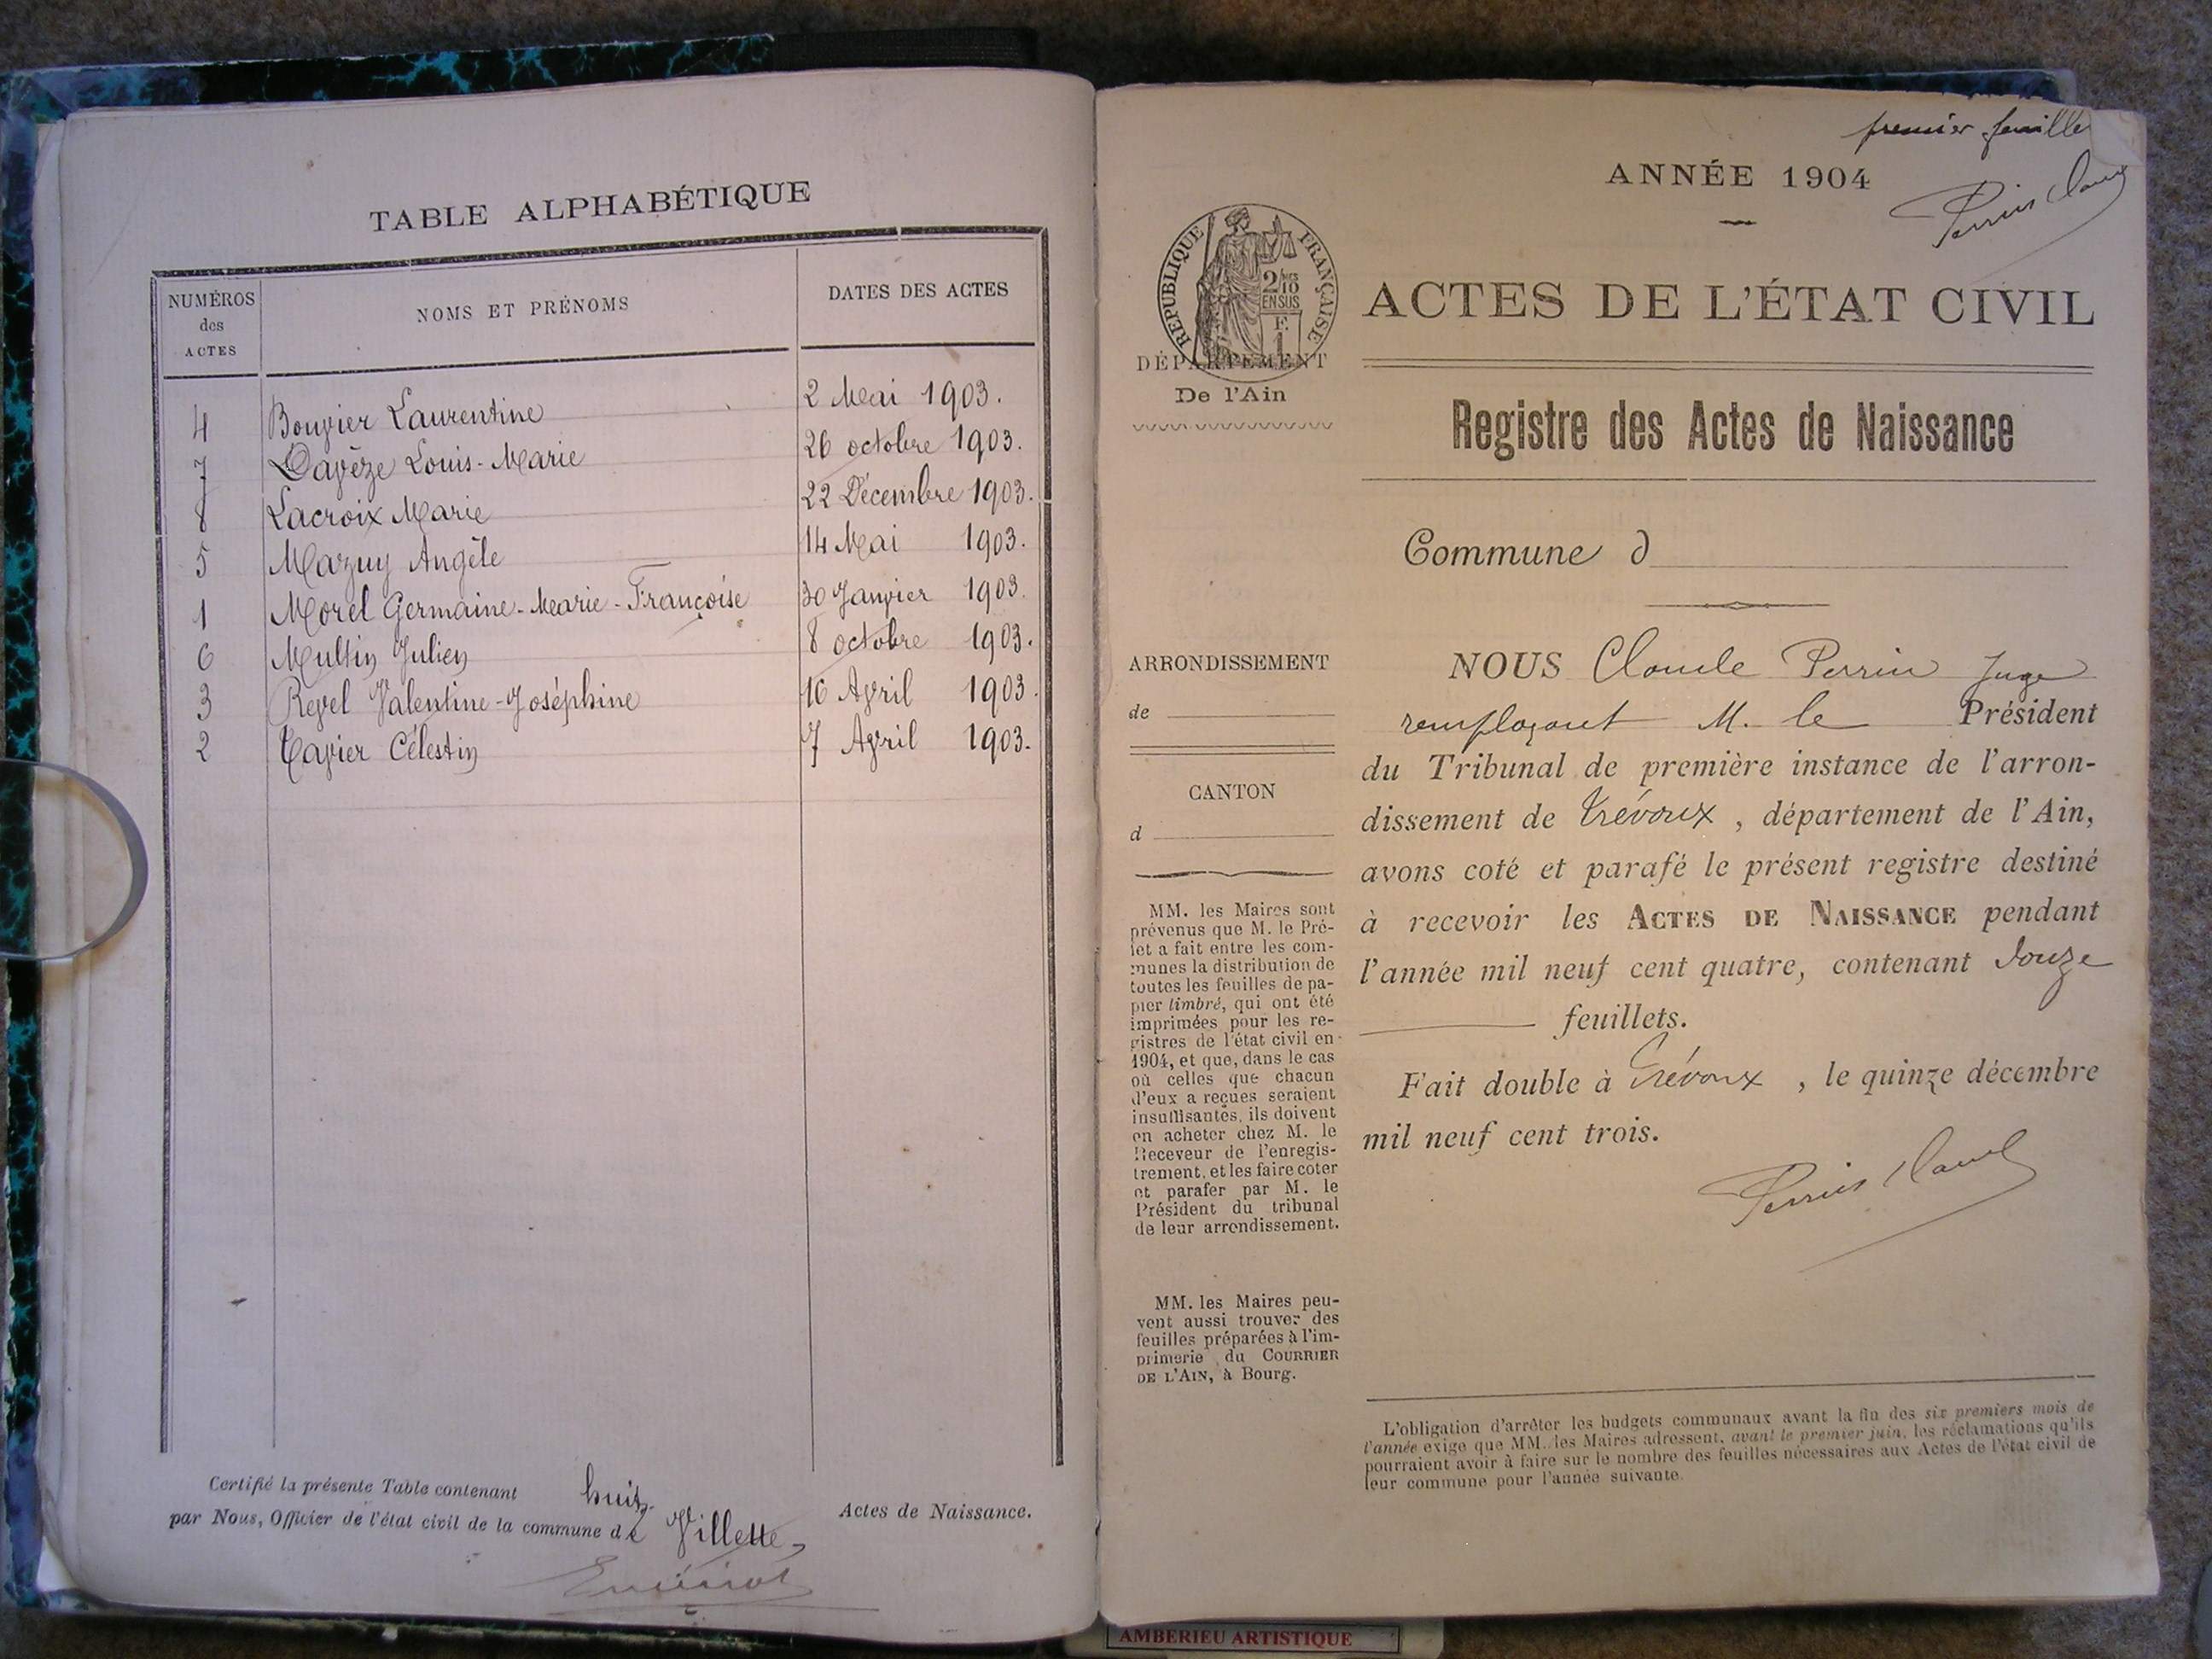 TABLE ALPHABÉTIQUE
NUMÉROS
des
ACTES
NOMS ET PRÉNOMS
DATES DES ACTES
4 Bouvier Laurentine 2 Mai 1903.
7 Davèze Louis-Marie 26 octobre 1903.
8 Lacroix Marie 22 Décembre 1903.
5 Mazuy Angèle 14 Mai 1903.
1 Morel Germaine-Marie-Françoise 30 Janvier 1903.
6 Multin Julien 8 octobre 1903.
3 Revel Valentine-Joséphine 16 Avril 1903.
2 Tavier Célestin 7 Avril 1903.
Certifié la présente Table contenant huit Actes de Naissance.
par Nous, Officier de l'état civil de la commune de Villette
premier feuillet
ANNÉE 1904
Perrin Claude
RÉPUBLIQUE FRANÇAISE
2/10
EN SUS
F.
1
DÉPARTEMENT
De l'Ain
ACTES DE L'ÉTAT CIVIL
Registre des Actes de Naissance
Commune d
ARRONDISSEMENT
de
CANTON
d
MM. les Maires sont
prévenus que M. le Pré-
fet a fait entre les com-
munes la distribution de
toutes les feuilles de pa-
pier timbré, qui ont été
imprimées pour les re-
gistres de l'état civil en
1904, et que, dans le cas
où celles que chacun
d'eux a reçues seraient
insuffisantes, ils doivent
en acheter chez M. le
Receveur de l'enregis-
trement, et les faire coter
et parafer par M. le
Président du tribunal
de leur arrondissement.
MM. les Maires peu-
vent aussi trouver des
feuilles préparées à l'im-
primerie du COURRIER
DE L'AIN, à Bourg.
NOUS Claude Perrin Juge
remplaçant M. le Président
du Tribunal de première instance de l'arron-
dissement de Trévoux, département de l'Ain,
avons coté et parafé le présent registre destiné
à recevoir les ACTES DE NAISSANCE pendant
l'année mil neuf cent quatre, contenant douze
feuillets.
Fait double à Trévoux, le quinze décembre
mil neuf cent trois.
Perrin Claude
L'obligation d'arrêter les budgets communaux avant la fin des six premiers mois de
l'année exige que MM. les Maires adressent, avant le premier juin, les réclamations qu'ils
pourraient avoir à faire sur le nombre des feuilles nécessaires aux Actes de l'état civil de
leur commune pour l'année suivante.
AMBERIEU ARTISTIQUE